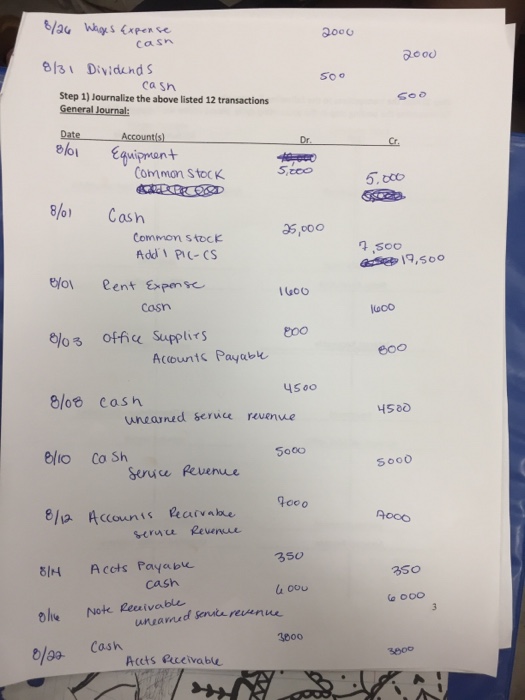 8/26 Wages Expense 2000
Cash 2000
8/31 Dividends 500
Cash 500
Step 1) Journalize the above listed 12 transactions
General Journal:
Date Account(s) Dr. Cr.
8/01 Equipment 5,000
Common Stock 5,000
8/01 Cash 25,000
Common Stock 7,500
Add'l PIC-CS 17,500
8/01 Rent Expense 1600
Cash 1600
8/03 Office Supplies 800
Accounts Payable 800
8/08 Cash 4500
unearned service revenue 4500
8/10 Cash 5000
Service Revenue 5000
8/12 Accounts Receivable 7000
Service Revenue 7000
8/14 Accts Payable 350
Cash 350
8/16 Note Receivable 6000
unearned service revenue 6000
3
8/22 Cash 3000
Accts Receivable 3000